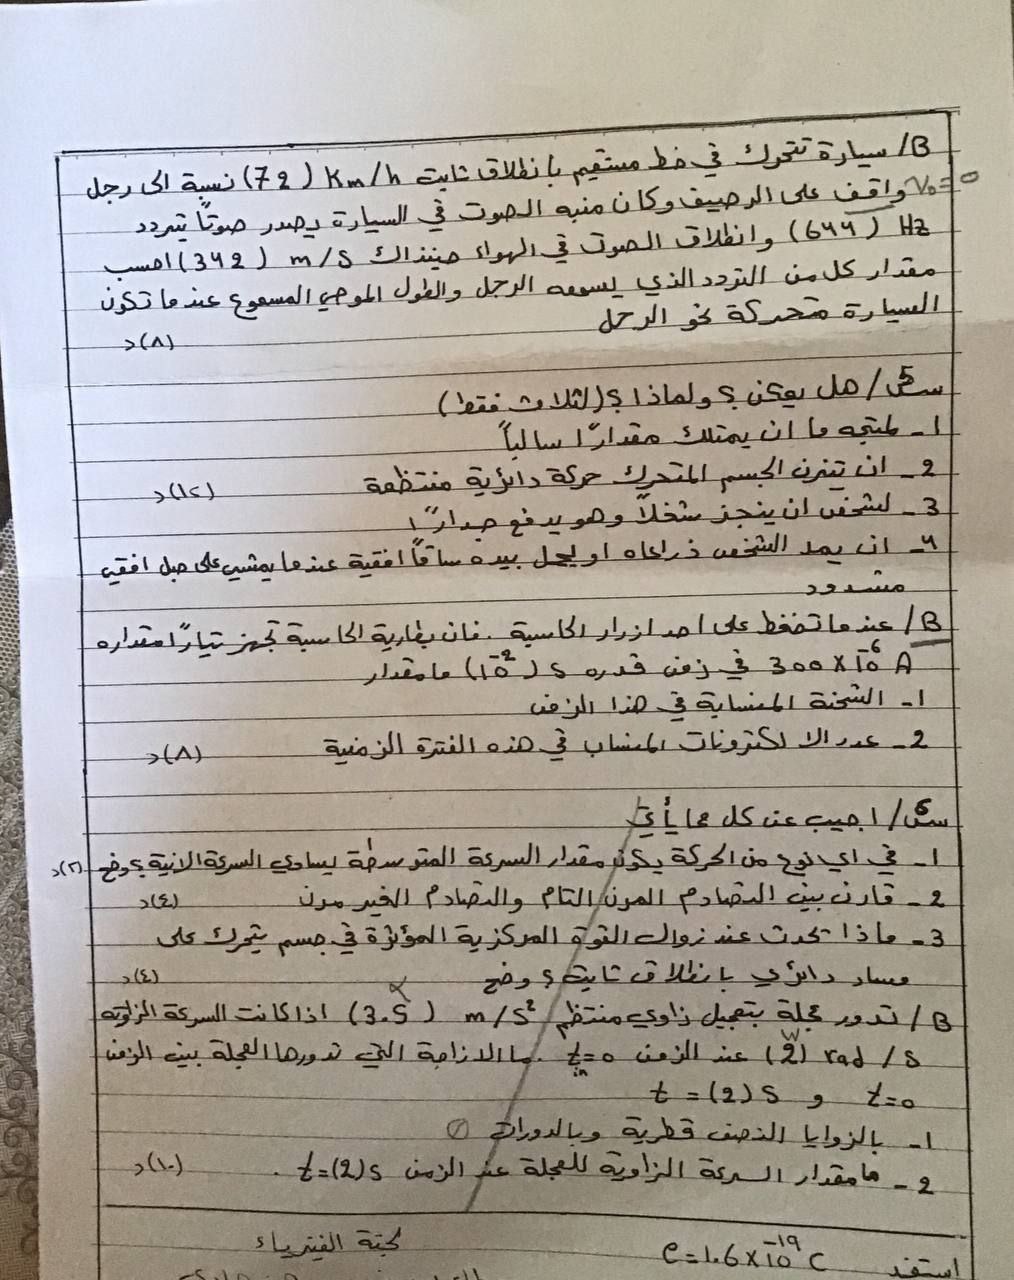 B/ سيارة تتحرك في خط مستقيم بانطلاق ثابت Km/h (72) نسبة الى رجل
واقف على الرصيف وكان منبه الصوت في السيارة يصدر صوتاً بتردد V₀=0
Hz (644) وانطلاق الصوت في الهواء حينذاك m/s (342) احسب
مقدار كل من التردد الذي يسمعه الرجل والطول الموجي المسموع عندما تكون
السيارة متحركة نحو الرجل
(٨)د
س5/ هل يمكن؟ ولماذا؟ (لثلاث فقط)
1- لمتجه ما ان يمتلك مقدارًا سالباً
2- ان تتزن الجسم المتحرك حركة دائرية منتظمة (١٢)د
3- لشخص ان ينجز شغلاً وهو يدفع جدارًا
4- ان يمد الشخص ذراعاه او يحمل بيده ساقاً افقية عندما يمشي على حبل افقي
مشدود
B/ عندما تضغط على احد ازرار الحاسبة . فان بطارية الحاسبة تجهز تيارًا مقداره
300 × 10⁻⁶ A في زمن قدره s (10⁻²) ما مقدار
1- الشحنة المنسابة في هذا الزمن
2- عدد الالكترونات المنساب في هذه الفترة الزمنية (٨)د
س6/ اجيب عن كل مما يأتي
1- في اي نوع من الحركة يكون مقدار السرعة المتوسطة يساوي السرعة الانية؟ وضح (٢)د
2- قارن بين التصادم المرن التام والتصادم الغير مرن (٤)د
3- ماذا تحدث عند زوال القوة المركزية المؤثرة في جسم يتحرك على
مسار دائري بانطلاق ثابت؟ وضح (٤)د
B/ تدور عجلة بتعجيل زاوي منتظم m/s² (3.5) α اذا كانت السرعة الزاوية
rad/s (2) w عند الزمن t=0 in . ما الازاحة التي تدورها العجلة بين الزمن
t=0 و t=(2)s
1- بالزوايا النصف قطرية وبالدورات
2- ما مقدار السرعة الزاوية للعجلة عند الزمن t=(2)s . (١٠)د
استفد e=1.6×10⁻¹⁹ C لجنة الفيزياء